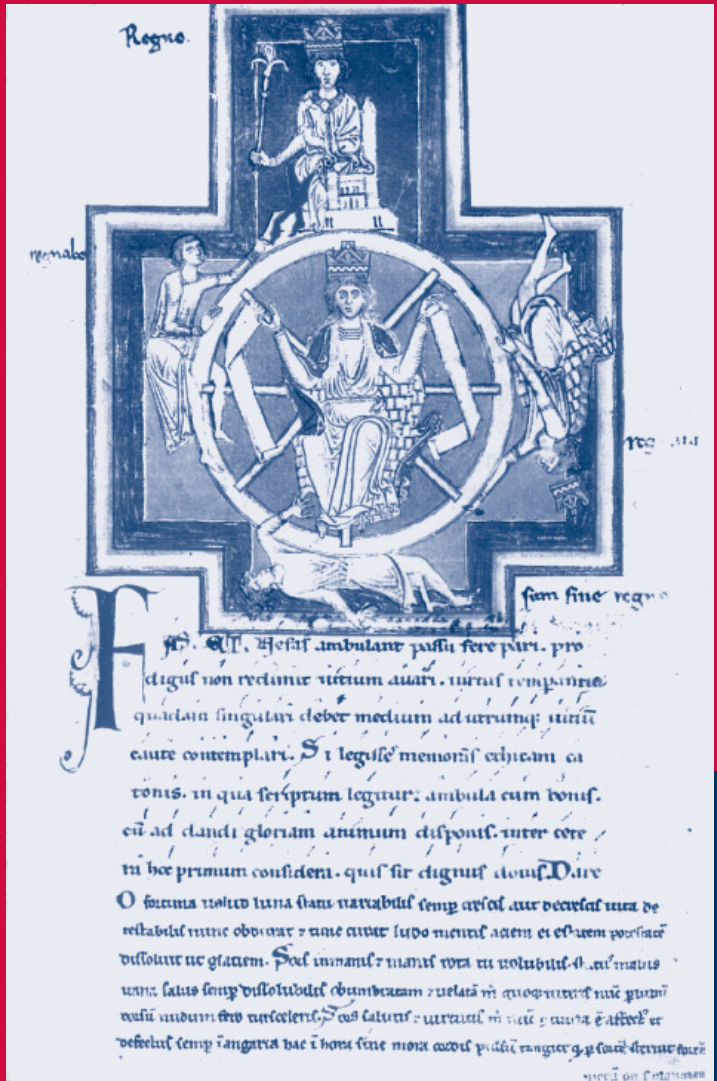 Regno.
regnabo
sum sine regno
FAS. ET. Nefas ambulant passu fere pari. pro
digus non redimit uitium auari. uirtus temperantia
quadam singulari debet medium ad utrumq; uitiu
caute contemplari. Si legisse memoras ethicam ca
tonis. in qua scriptum legitur. ambula cum bonis.
cu ad dandi gloriam animum disponis. inter cete
ra hoc primum considera. quis sit dignus donis. Dare
O fortuna uelud luna statu uariabilis semp crescis aut decrescis uita de
testabilis nunc obdurat 7 tunc curat ludo mentis aciem egestatem potestate
dissoluit ut glaciem. Sors inmanis 7 inanis rota tu uolubilis. st. malus
uana salus semp dissolubilis obumbratam 7 uelata m quoq niteris nuc p ludu
dorsu nudum fero tui sceleris. Sors salutis 7 uirtutis m nuc affectus et
defectus semp i angaria hac i hora sine mora cordis pulsu tangite q p sorte sternit forte